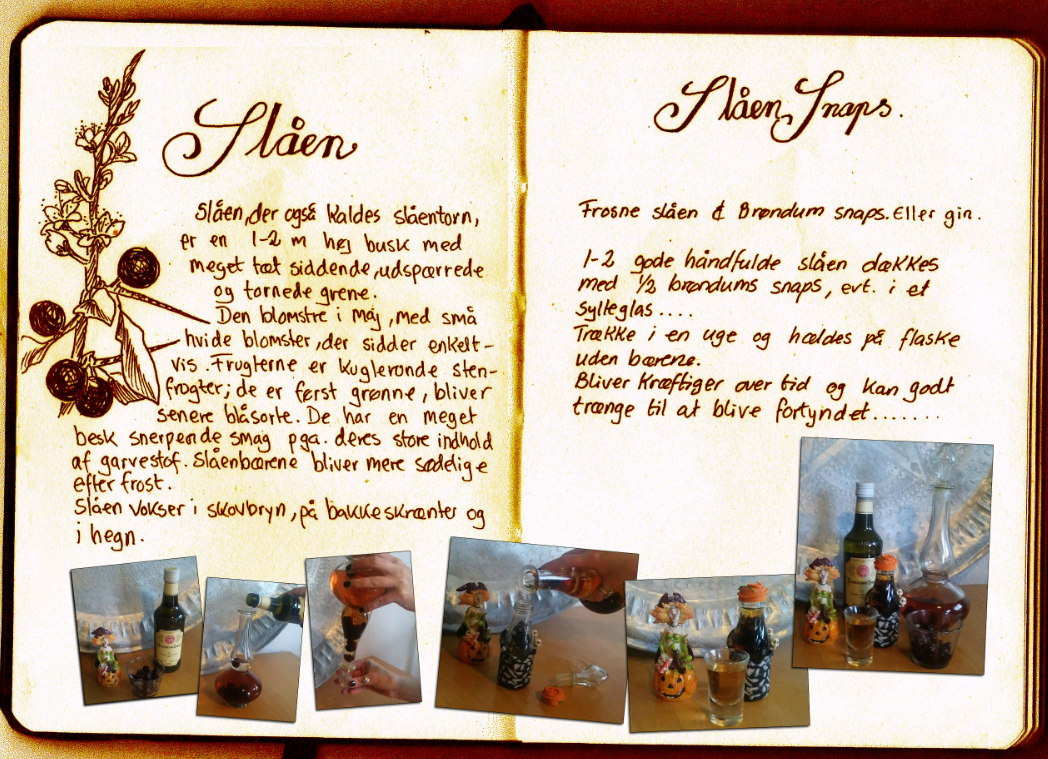 Slåen
Slåen, der også kaldes slåentorn,
er en 1-2 m høj busk med
meget tæt siddende, udspærrede
og tornede grene.
Den blomstre i maj, med små
hvide blomster, der sidder enkelt-
vis. Frugterne er kuglerunde sten-
frugter; de er først grønne, bliver
senere blåsorte. De har en meget
besk snerpende smag pga. deres store indhold
af garvestof. Slåenbærene bliver mere søddige
efter frost.
Slåen vokser i skovbryn, på bakkeskrænter og
i hegn.
Slåen Snaps.
Frosne slåen & Brøndum snaps. Eller gin.
1-2 gode håndfulde slåen dækkes
med 1/2 brøndums snaps, evt. i et
sylteglas....
Trække i en uge og hældes på flaske
uden bærene.
Bliver kræftiger over tid og kan godt
trænge til at blive fortyndet.......